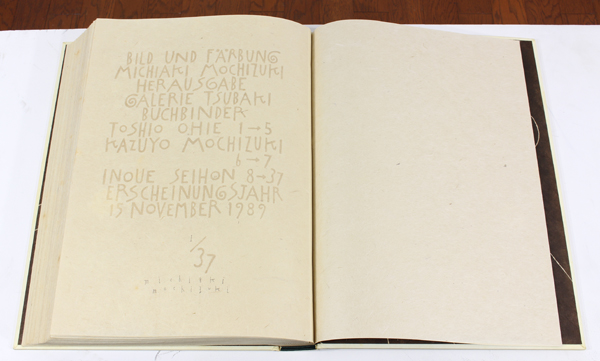 BILD UND FÄRBUNG
MICHIAKI MOCHIZUKI
HERAUSGABE
GALERIE TSUBAKI
BUCHBINDER
TOSHIO OHIE 1→5
KAZUYO MOCHIZUKI
6→7
INOUE SEIHON 8→37
ERSCHEINUNGSJAHR
15 NOVEMBER 1989
1/37